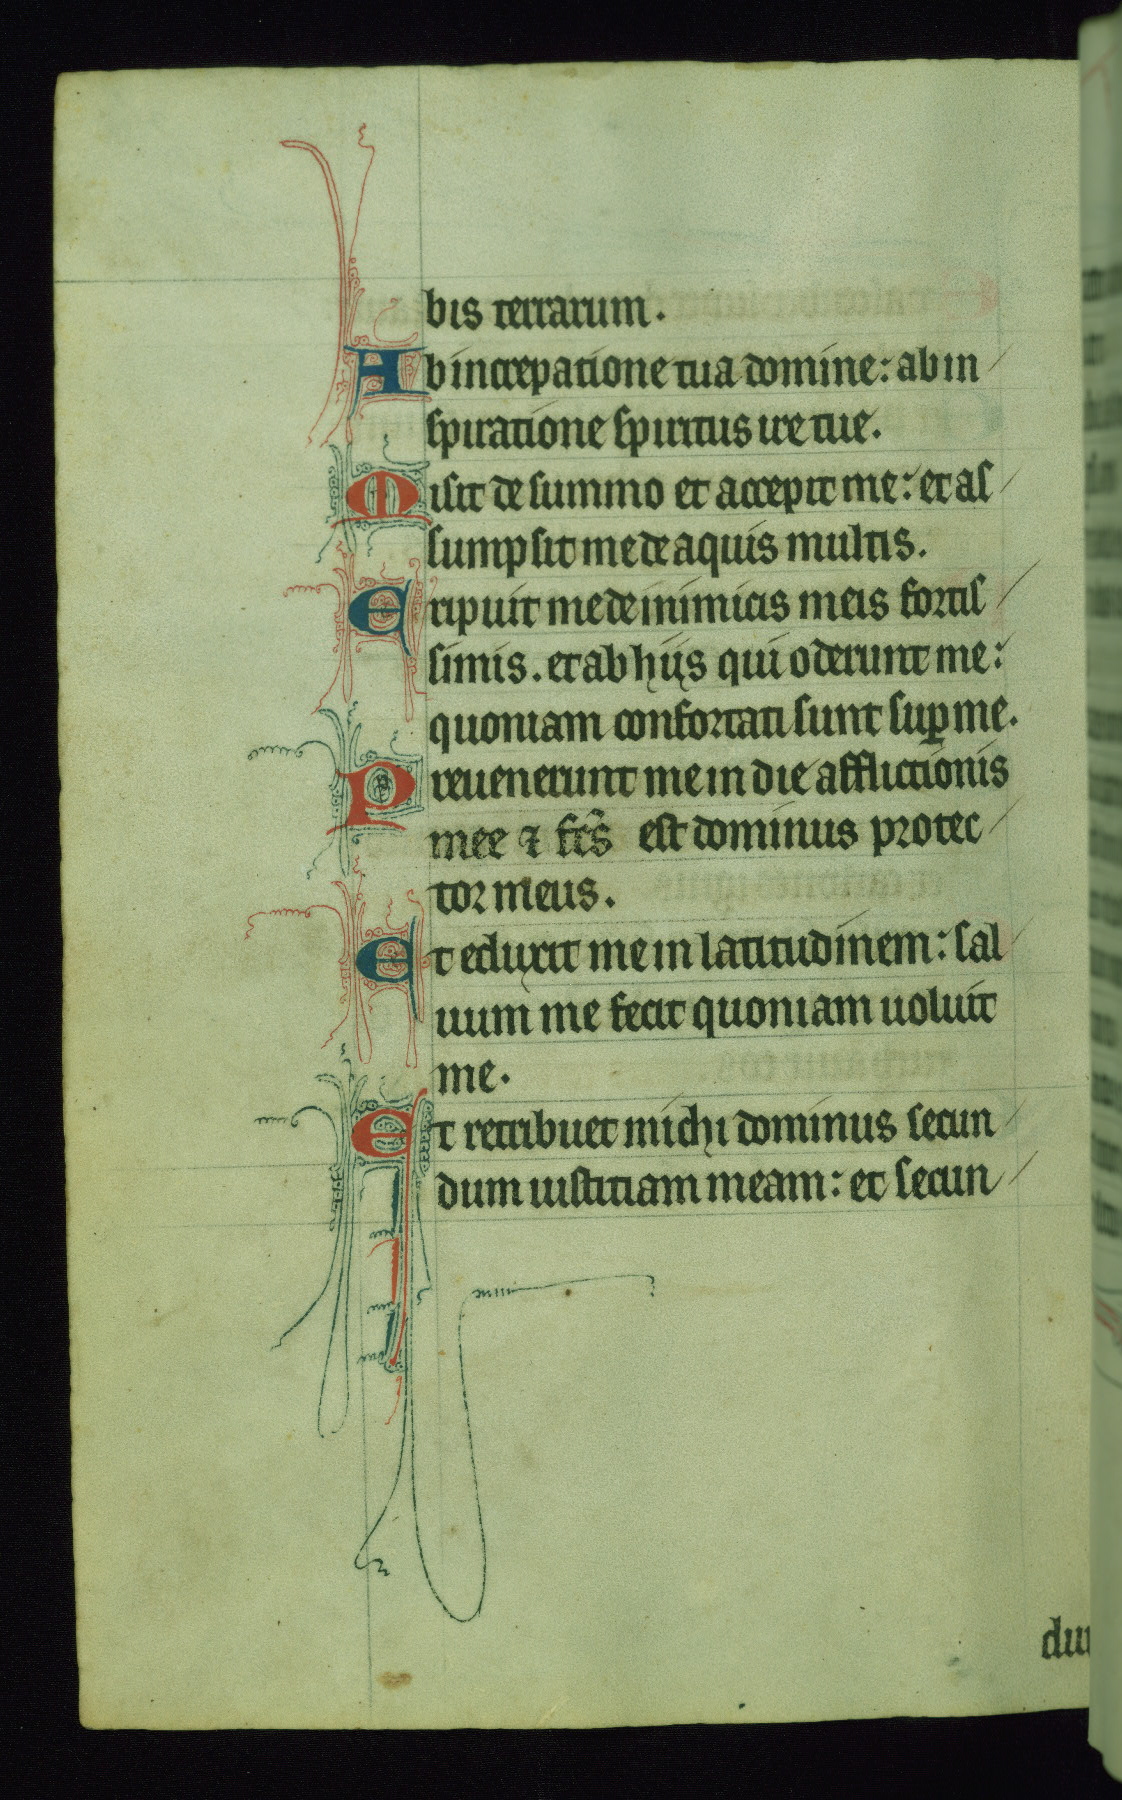 bis terrarum.
Ab increpatione tua domine: ab in
spiratione spiritus ire tue.
Misit de summo et accepit me: et as
sumpsit me de aquis multis.
Eripuit me de inimicis meis fortis
simis. et ab hiis qui oderunt me:
quoniam confortati sunt sup me.
Preuenerunt me in die afflictionis
mee ⁊ fcs est dominus protec
tor meus.
Et eduxit me in latitudinem: sal
uum me fecit quoniam uoluit
me.
Et retribuet michi dominus secun
dum iustitiam meam: et secun